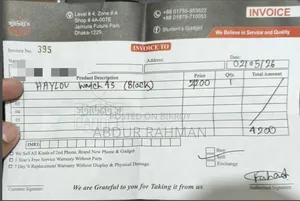 Level # 4, Zone # D
Shop # 4A-007E
Jamuna Future Park,
Dhaka-1229.
INVOICE
Student's Gadget
We Believe in Service and Quality
Invoice No. 395
INVOICE TO
Date
02/5/26
Product Description
Price
Qty
Total Amount
HAYLOU WATCH 4S (Black)
1
POSTED ON BIKROY
ABDUR RAHMAN
4200
IMEI:
We Sell All Kinds of 2nd Phone, Brand New Phone & Gadget
Year's Free Service Warranty Without Parts
7 Day's Replacement Warranty Without Display & Physical Damage.
Buy
Sell
Exchange
Customer Signature
We are Grateful to you for Taking it from us
Authorize Signature